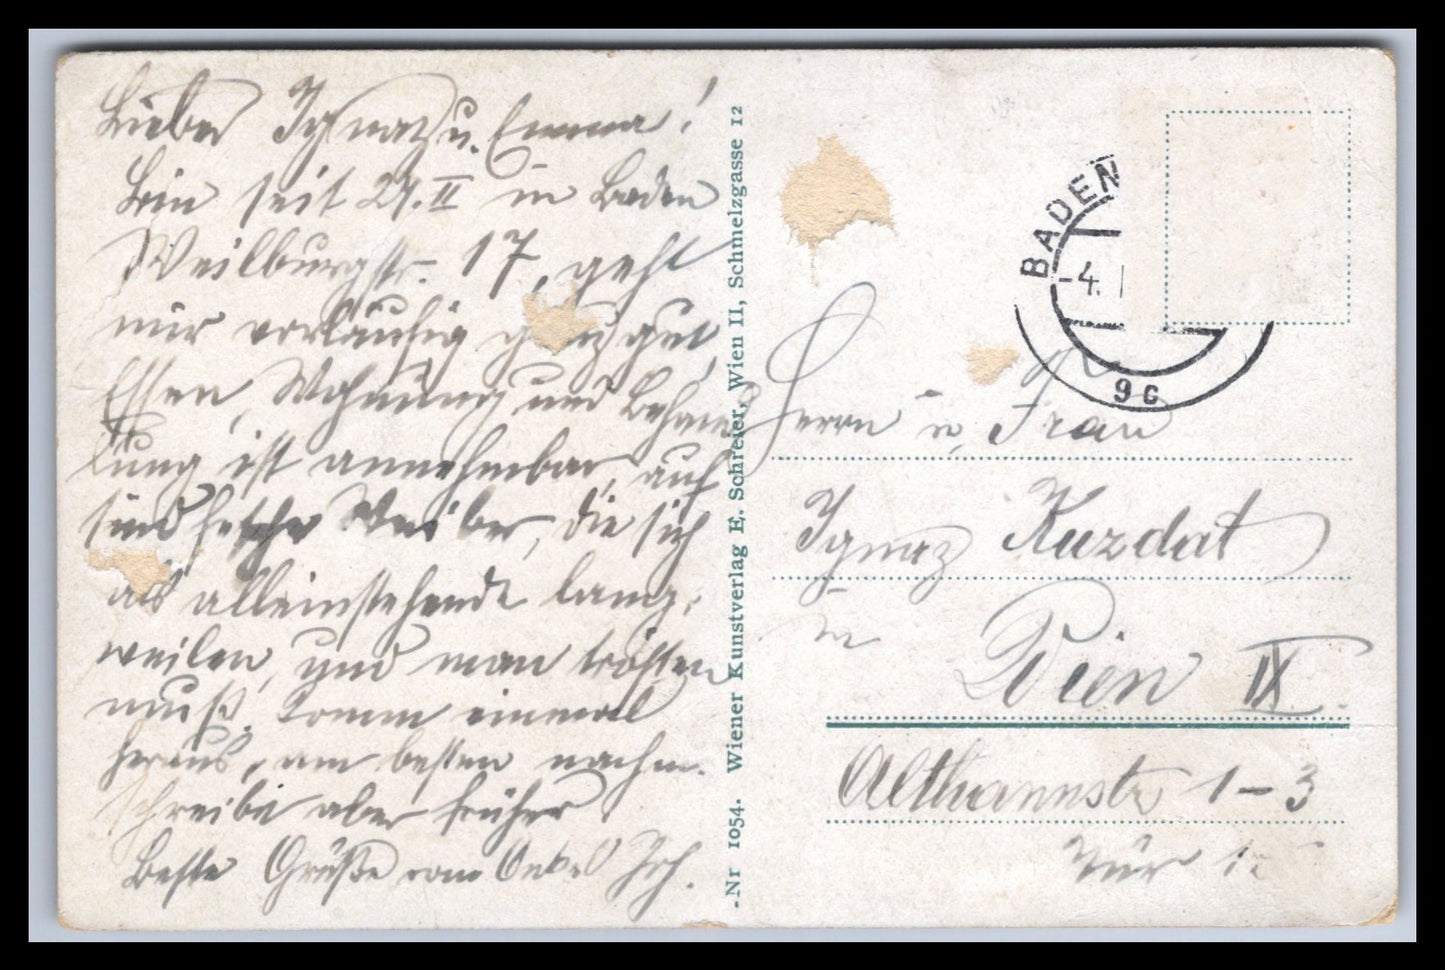 Lieber Ignaz u. Emma!
Bin seit 24.II in Baden
Weilburgstr. 17, geht
mir vorläufig ganz gut,
Essen, Wohnung und Behand
lung ist annehmbar, auf
sind fesche Weiber, die sich
als alleinstehende lang-
weilen, und man trösten
muß. Komm einmal
heraus, am besten nachm.
schreibe aber früher
Beste Grüße vom Onkel
-Nr 1054. Wiener Kunstverlag E. Schreier, Wien II, Schmelzgasse 12
BADEN
-4. I
9c
Herrn u. Frau
Ignaz Kuzdat
in
Wien IX.
Althannstr 1-3
Tür